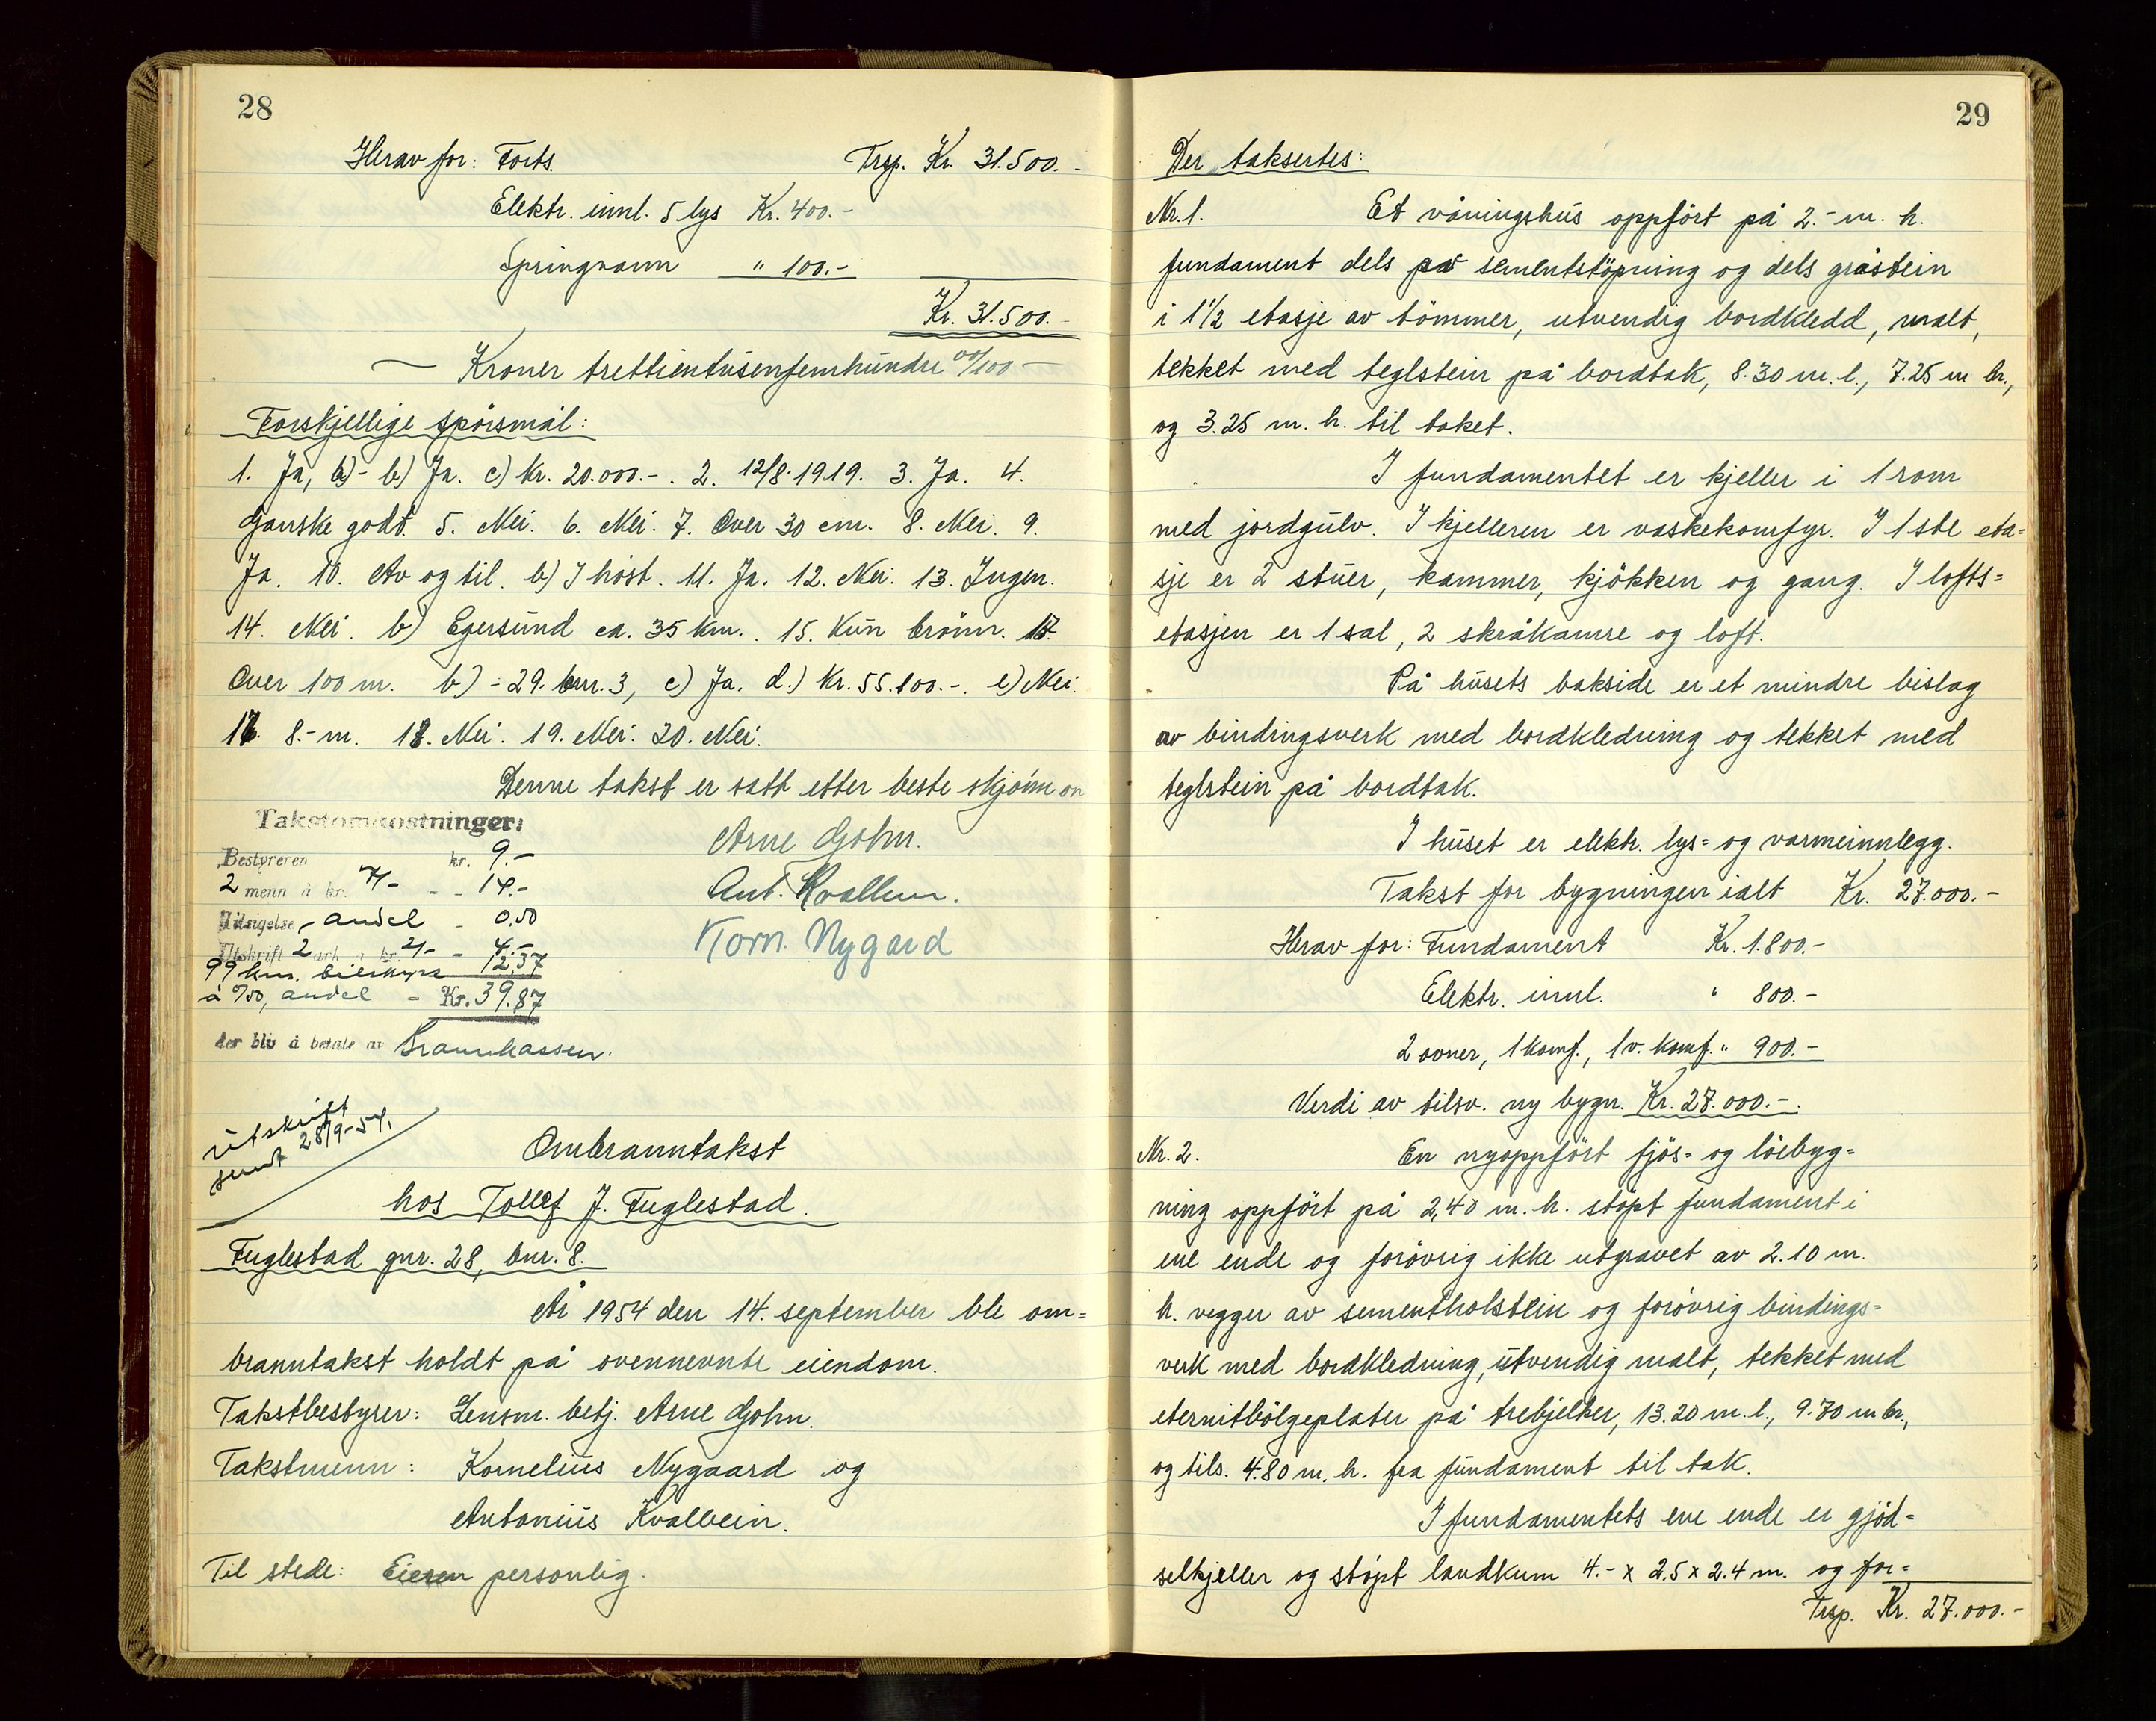 28
Herav for: Forts. Trsp. Kr. 31.500.-
Elektr. innl. 5 lys Kr. 400.-
Springvann " 100.-
Kr. 31.500.-
— Kroner trettientusenfemhundre 00/100 —
Forskjellige spörsmål:
1. Ja, a)- b) Ja. c) Kr. 20.000.-. 2. 12/8.1919. 3. Ja. 4.
Ganske godt. 5. Nei. 6. Nei. 7. Over 30 cm. 8. Nei. 9.
Ja. 10. Av og til. b) I höst. 11. Ja. 12. Nei. 13. Ingen.
14. Nei. b) Egersund ca. 35 km.. 15. Kun brönn. 17.
Over 100 m. b) - 29. bnr. 3, c) Ja. d.) Kr. 55.100.-. e) Nei.
16. 8.- m. 18. Nei. 19. Nei. 20. Nei.
Denne takst er satt etter beste skjönn
Takstomkostninger:
Bestyreren kr. 9.-
2 menn à kr. 7/- - - 14.-
Tilsigelse, - andel - 0.50
Utskrift 2 ark à kr. 2/- - 4.-
99 km. bilskyss 12.37
à 0/50, andel - Kr. 39.87
der blir å betale av Brannkassen.
Arne Gohn.
Ant. Kvalbein.
Korn. Nygård
utskrift
sendt 28/9-54.
Ombranntakst
hos Tollef J. Fuglestad.
Fuglestad gnr. 28, bnr. 8.
År 1954 den 14. september ble om=
branntakst holdt på ovennevnte eiendom.
Takstbestyrer: Lensm. betj. Arne Gohn.
Takstmenn: Kornelius Nygaard og
Antonius Kvalbein.
Til stede: Eieren personlig.
29
Der taksertes:
Nr. 1. Et våningshus oppfört på 2.- m. h.
fundament dels på sementstöpning og dels gråstein
i 1 1/2 etasje av tömmer, utvendig bordkledd, malt,
tekket med teglstein på bordtak, 8.30 m. l., 7.25 m br.,
og 3.25 m. h. til taket.
I fundamentet er kjeller i 1 rom
med jordgulv. I kjelleren er vaskekomfyr. I 1ste eta=
sje er 2 stuer, kammer, kjökken og gang. I lofts=
etasjen er 1 sal, 2 skråkamre og loft.
På husets bakside er et mindre bislag
av bindingsverk med bordkledning og tekket med
teglstein på bordtak.
I huset er elektr. lys= og varmeinnlegg.
Takst for bygningen ialt Kr. 27.000.-
Herav for: Fundament Kr. 1.800.-
Elektr. innl. " 800.-
2 ovner, 1 komf., 1 v. komf. " 900.-
Verdi av tilsv. ny bygn. Kr. 27.000.-.
Nr. 2. En nyoppfört fjös- og löebyg=
ning oppfört på 2,40 m. h. stöpt fundament i
ene ende og forövrig ikke utgravet av 2.10 m.
h. vegger av sementholstein og forövrig bindings=
verk med bordkledning, utvendig malt, tekket med
eternitbölgeplater på trebjelker, 13.20 m. l., 9.70 m br.,
og tils. 4.80 m. h. fra fundament til tak.
I fundamentets ene ende er gjöd=
selkjeller og stöpt landkum 4.- x 2.5 x 2.4 m. og for=
Trsp. Kr. 27.000.-